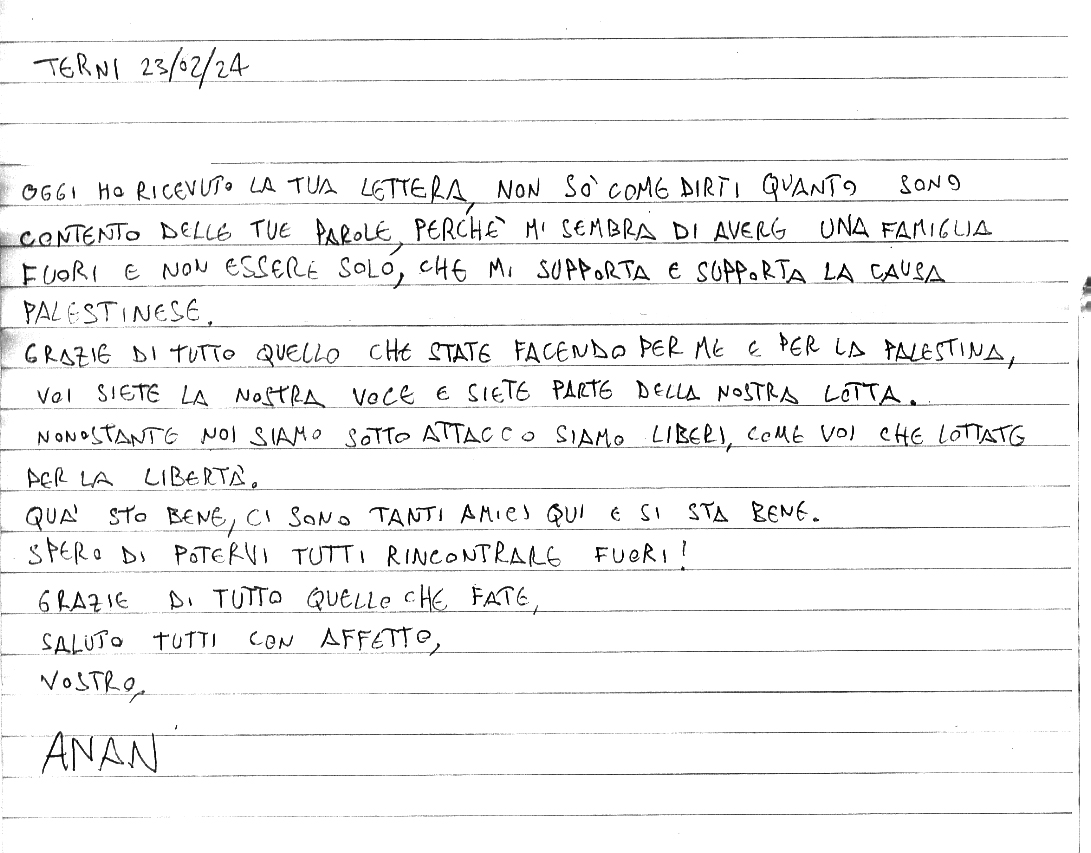 TERNI 23/02/24
OGGI HO RICEVUTO LA TUA LETTERA, NON SO' COME DIRTI QUANTO SONO
CONTENTO DELLE TUE PAROLE, PERCHÈ MI SEMBRA DI AVERE UNA FAMIGLIA
FUORI E NON ESSERE SOLO, CHE MI SUPPORTA E SUPPORTA LA CAUSA
PALESTINESE.
GRAZIE DI TUTTO QUELLO CHE STATE FACENDO PER ME E PER LA PALESTINA,
VOI SIETE LA NOSTRA VOCE E SIETE PARTE DELLA NOSTRA LOTTA.
NONOSTANTE NOI SIAMO SOTTO ATTACCO SIAMO LIBERI, COME VOI CHE LOTTATE
PER LA LIBERTÀ.
QUA' STO BENE, CI SONO TANTI AMICI QUI E SI STA BENE.
SPERO DI POTERVI TUTTI RINCONTRARE FUORI!
GRAZIE DI TUTTO QUELLO CHE FATE,
SALUTO TUTTI CON AFFETTO,
VOSTRO,
ANAN